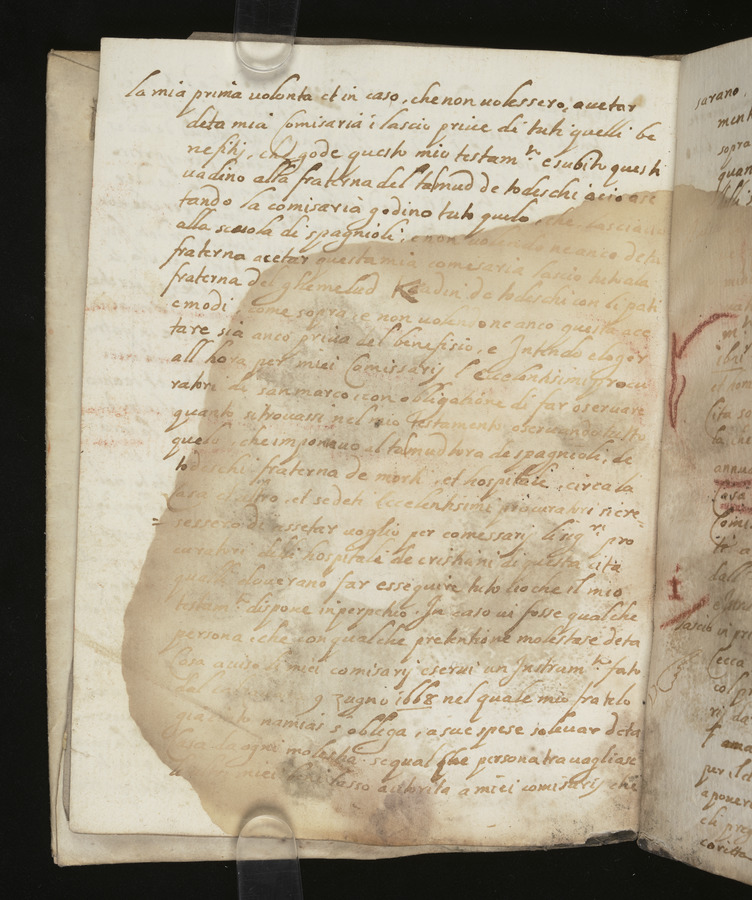 la mia prima uolonta et in caso, che non uolessero, acetar
deta mia Comisaria i lascio priue di tuti quelli be
nefitij, che gode questo mio testam.to e subito questi
uadino alla fraterna del talmud de todeschi acio ace
tando la comisaria godino tuto quelo, che lasciauo
alla scuola di spagnioli, e non uolendo ne anco deta
fraterna acetar questa mia comesaria lascio tuto ala
fraterna del ghemelud de todeschi con li pati
e modi, come sopra, e non uolendo ne anco questa ace
tare sia anco priua del benefisio, e Intendo eleger
all hora per miei Comissarij l'eccelentissimi procu
ratori di san marco, con obligatione di far oseruare
quanto si trouassi nel mio testamento oseruando tutto
quelo, che imponeuo al talmud tora de spagnioli, de
todeschi, fraterna de morti, et hospitale, circa la
casa et, et sedeti Eccelentissimi procuratori si cre=
= sessero di assetar uoglio per comessarij li sig.ri pro
curatori de li hospitale de cristiani di questa cita
quali douerano far esseguire tuto cio che il mio
testam.to dispone in perpetuo. In caso ui fosse qualche
persona, che con qualche pretentione molestase deta
Cosa auiso li miei comisarij eserui un Instrum.to fato
9 zugno 1668 nel quale mio fratelo
giacob namias s'obliga, a sue spese soleuar deta
Casa da ogni molestia. se qual che persona trauagliase
miei lasso autorita a miei comisarij che
sarano,
ment
sopra
quan
ibri
et non
cita
la
annua
Casa
Comi
te a
dall
lascio in pr
Cecca
col p
rij da
f ama
per il
aponer
di pre
caritta